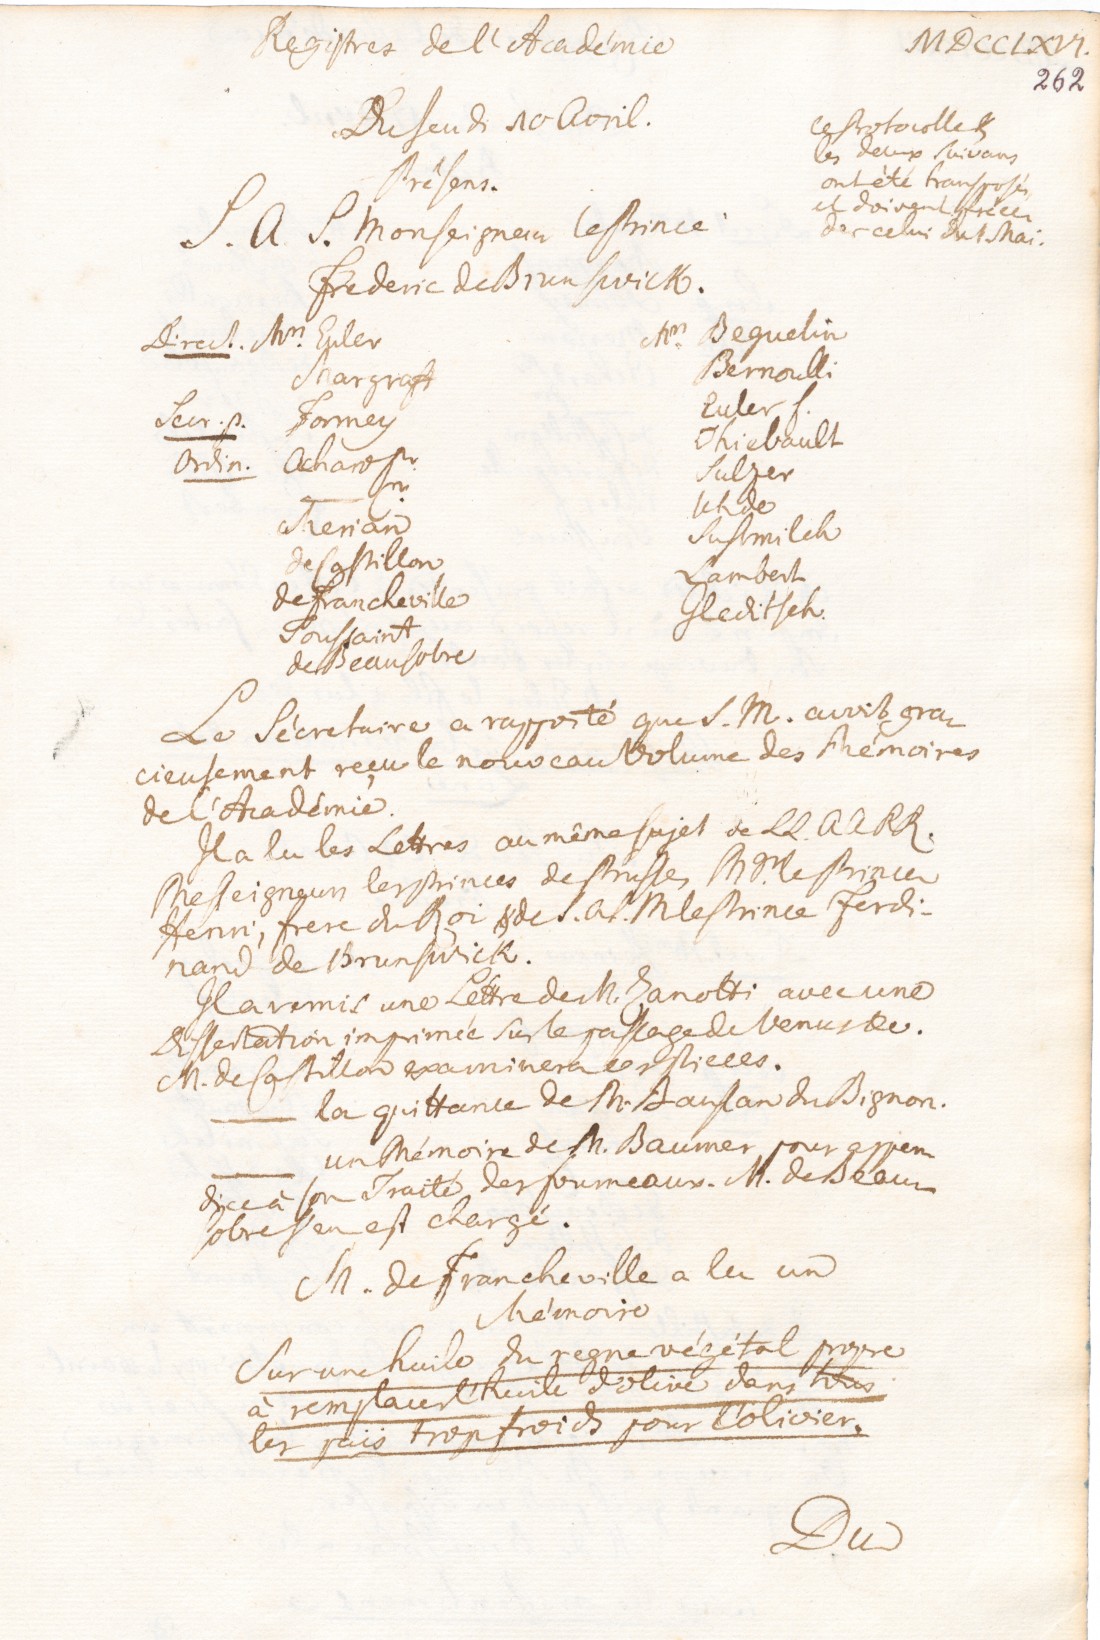 Registres de l'Académie
MDCCLXVI.
262
Du Jeudi 10 Avril.
ce Protocolle &
les deux suivans
ont été transposés
et doivent précé
der celui du 1. Mai.
Présens.
S. A. S. Monseigneur le Prince
Frederic de Brunswick.
Direct. Mrs. Euler
Margraff
Secr. p. Formey
Ordin. Achard Pr.
Merian
de Castillon
de Francheville
Toussaint
de Beausobre
Mrs. Beguelin
Bernoulli
Euler f.
Thiebault
Sulzer
Uhde
Susmilch
Lambert
Gleditsch.
Le Sécretaire a rapporté que S. M. avoit gra
cieusement reçu le nouveau Volume des Mémoires
de l'Académie.
Il a lu les Lettres au même sujet de LL. AA RR.
Messeigneurs les Princes de Prusse, Mgr. le Prince
Henri, frere du Roi & de S. A. S. M le Prince Ferdi-
nand de Brunswick.
Il a remis une Lettre de M. Zanotti avec une
Dissertation imprimée sur le passage de Venus &c.
M. de Castillon examinera ces Pieces.
la quittance de M. du Bignon.
un Mémoire de M. Baumer pour appen
dice à son Traité des fourneaux. M. de Beau
sobre s'en est chargé.
M. de Francheville a lu un
Mémoire
Sur une huile du regne végétal propre
à remplacer l'huile d'olive dans tous
les païs trop froids pour l'olivier.
Du